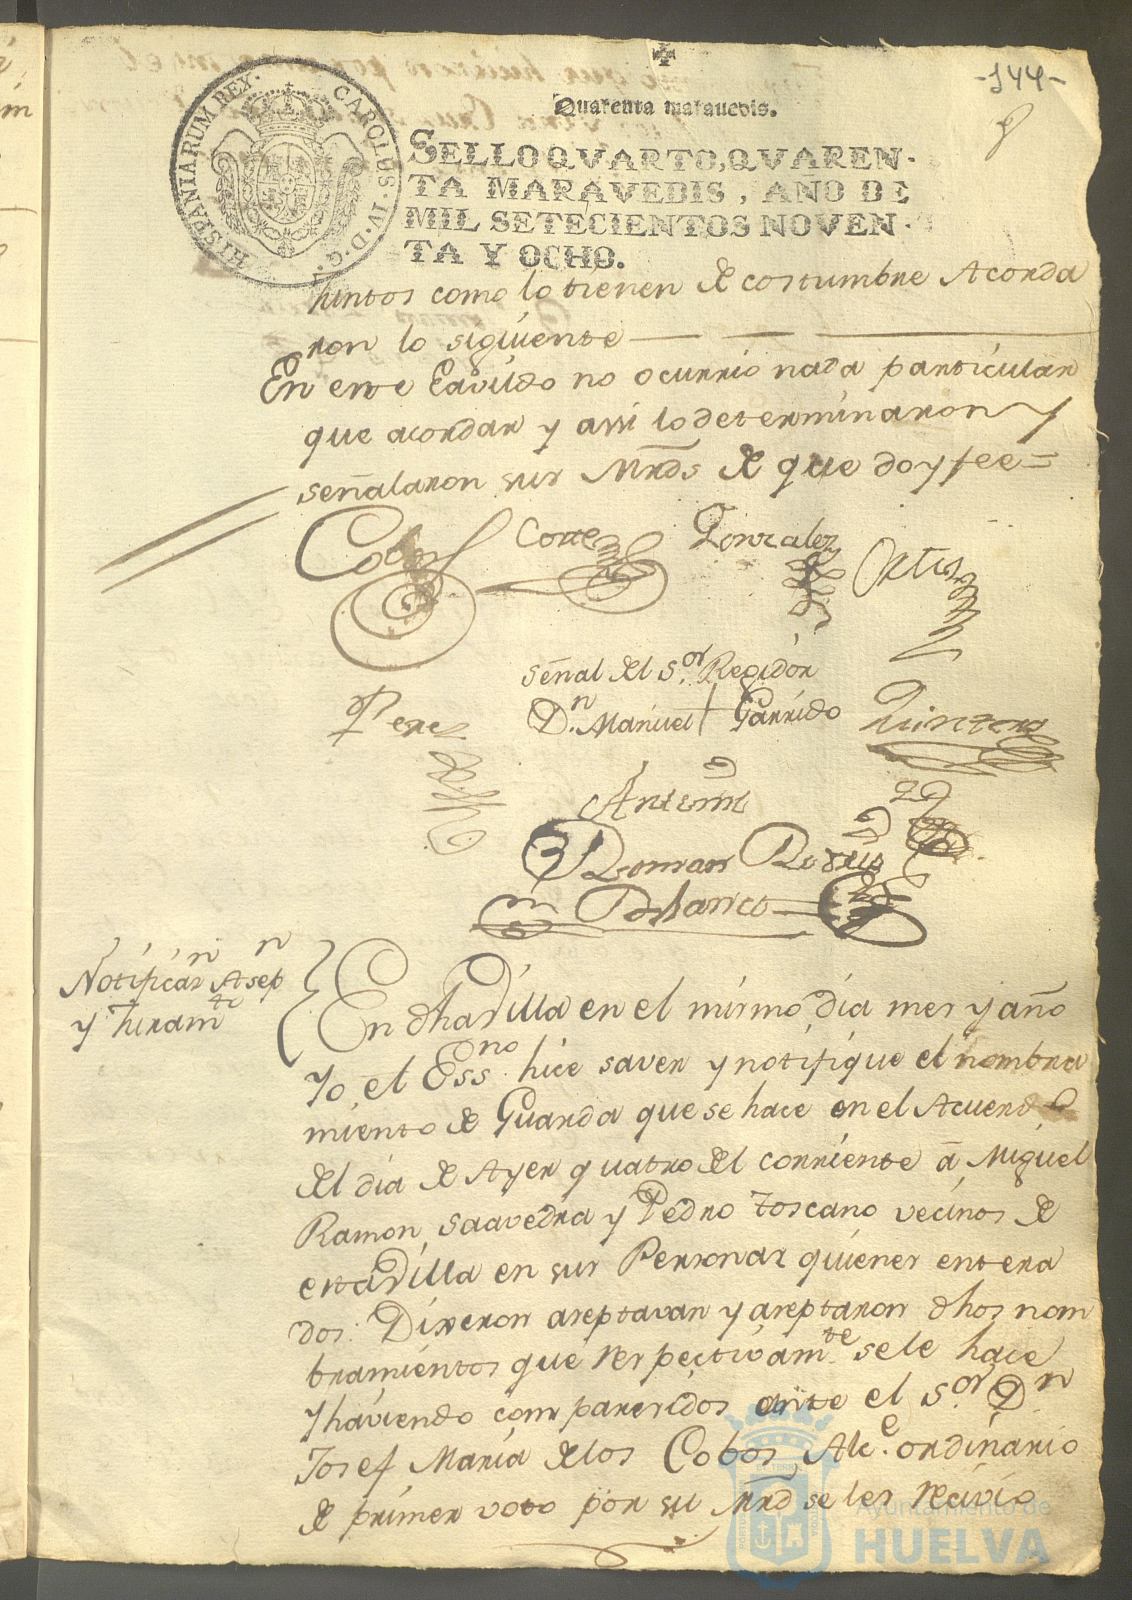 -144-
Quarenta marauedis.
HISPANIARUM REX. CAROLUS · IV · D · G ·
SELLO QVARTO, QVAREN-
TA MARAVEDIS, AÑO DE
MIL SETECIENTOS NOVEN-
TA Y OCHO.
Juntos como lo tienen de costumbre Acorda
ron lo siguiente
En este Cavildo no ocurrio nada particular
que acordar y assi lo determinaron y
señalaron sus Mrds de que doy fee =
Cobos Corte Gonzalez Ortiz
Señal del S.or Regidor
Perez D.n Manuel + Garrido Quintero
Antemi
Roman
Blanco
Notificaz.n Asep.n
y Juram.to
En dha Villa en el mismo dia mes y año
Yo el Ess.no hice saver y notifique el nombra
miento de Guarda que se hace en el Acuerdo
del dia de Ayer quatro del corriente a Miguel
Ramon Saavedra y Pedro Toscano vecinos de
esta Villa en sus Personas quienes entera
dos: Dixeron aseptavan y aseptaron dhos nom
bramientos que respectivam.te se le hace
y haviendo comparesidos ante el S.or D.n
Josef Maria de los Cobos Alc.e ordinario
de primer voto por su Mrd se les recivio
Ayuntamiento de
HUELVA